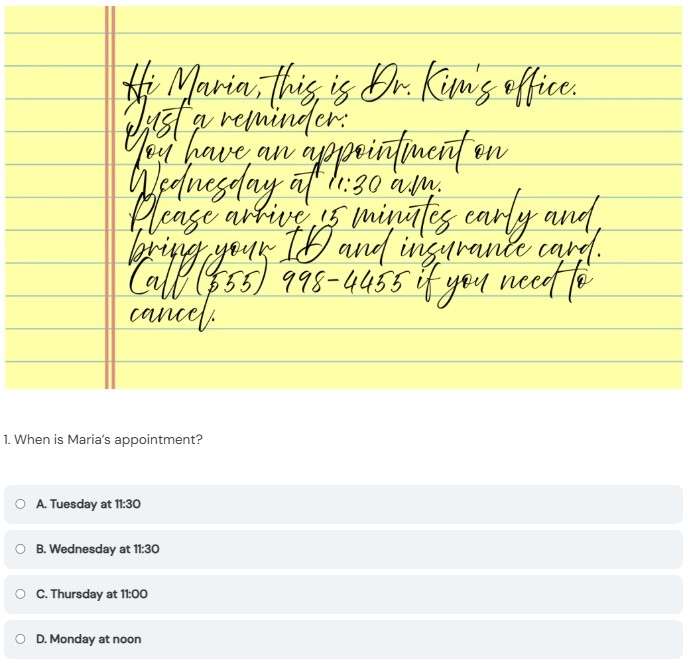 Hi Maria, this is Dr. Kim's office.
Just a reminder:
You have an appointment on
Wednesday at 11:30 a.m.
Please arrive 15 minutes early and
bring your ID and insurance card.
Call (555) 998-4455 if you need to
cancel.
1. When is Maria's appointment?
A. Tuesday at 11:30
B. Wednesday at 11:30
C. Thursday at 11:00
D. Monday at noon